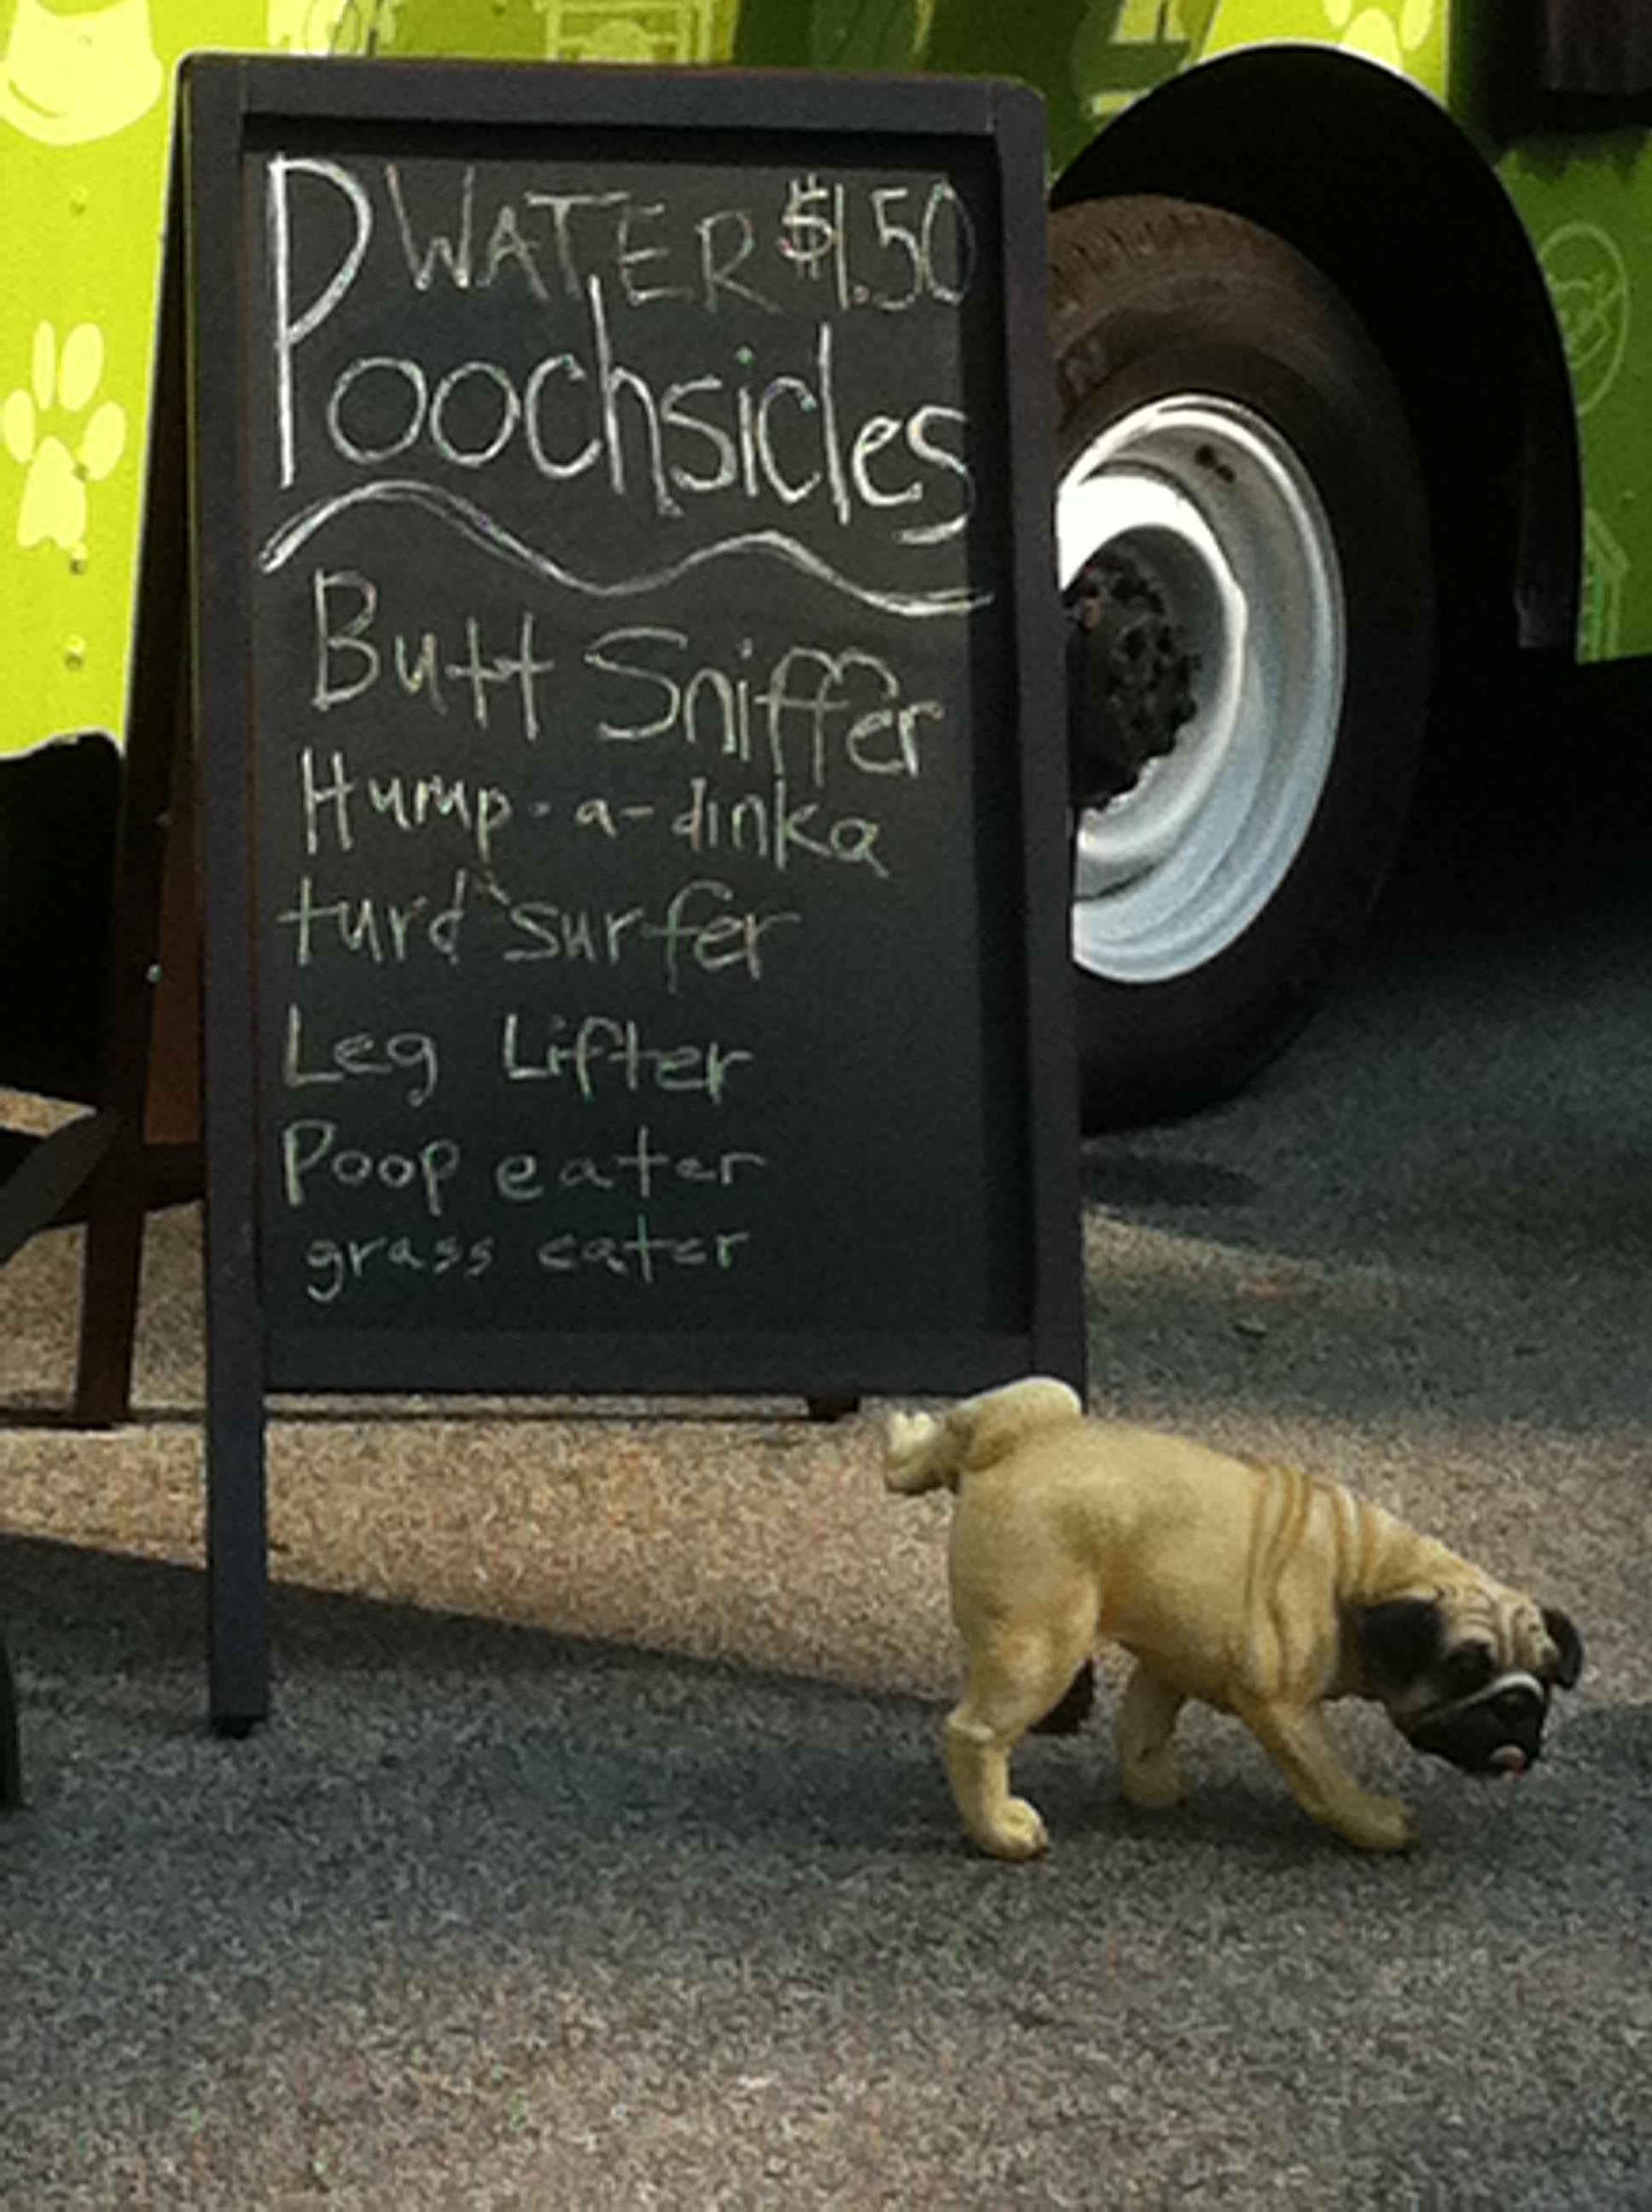 WATER $1.50
Poochsicles
Butt Sniffer
Hump-a-dinka
turd surfer
Leg Lifter
Poop eater
grass eater